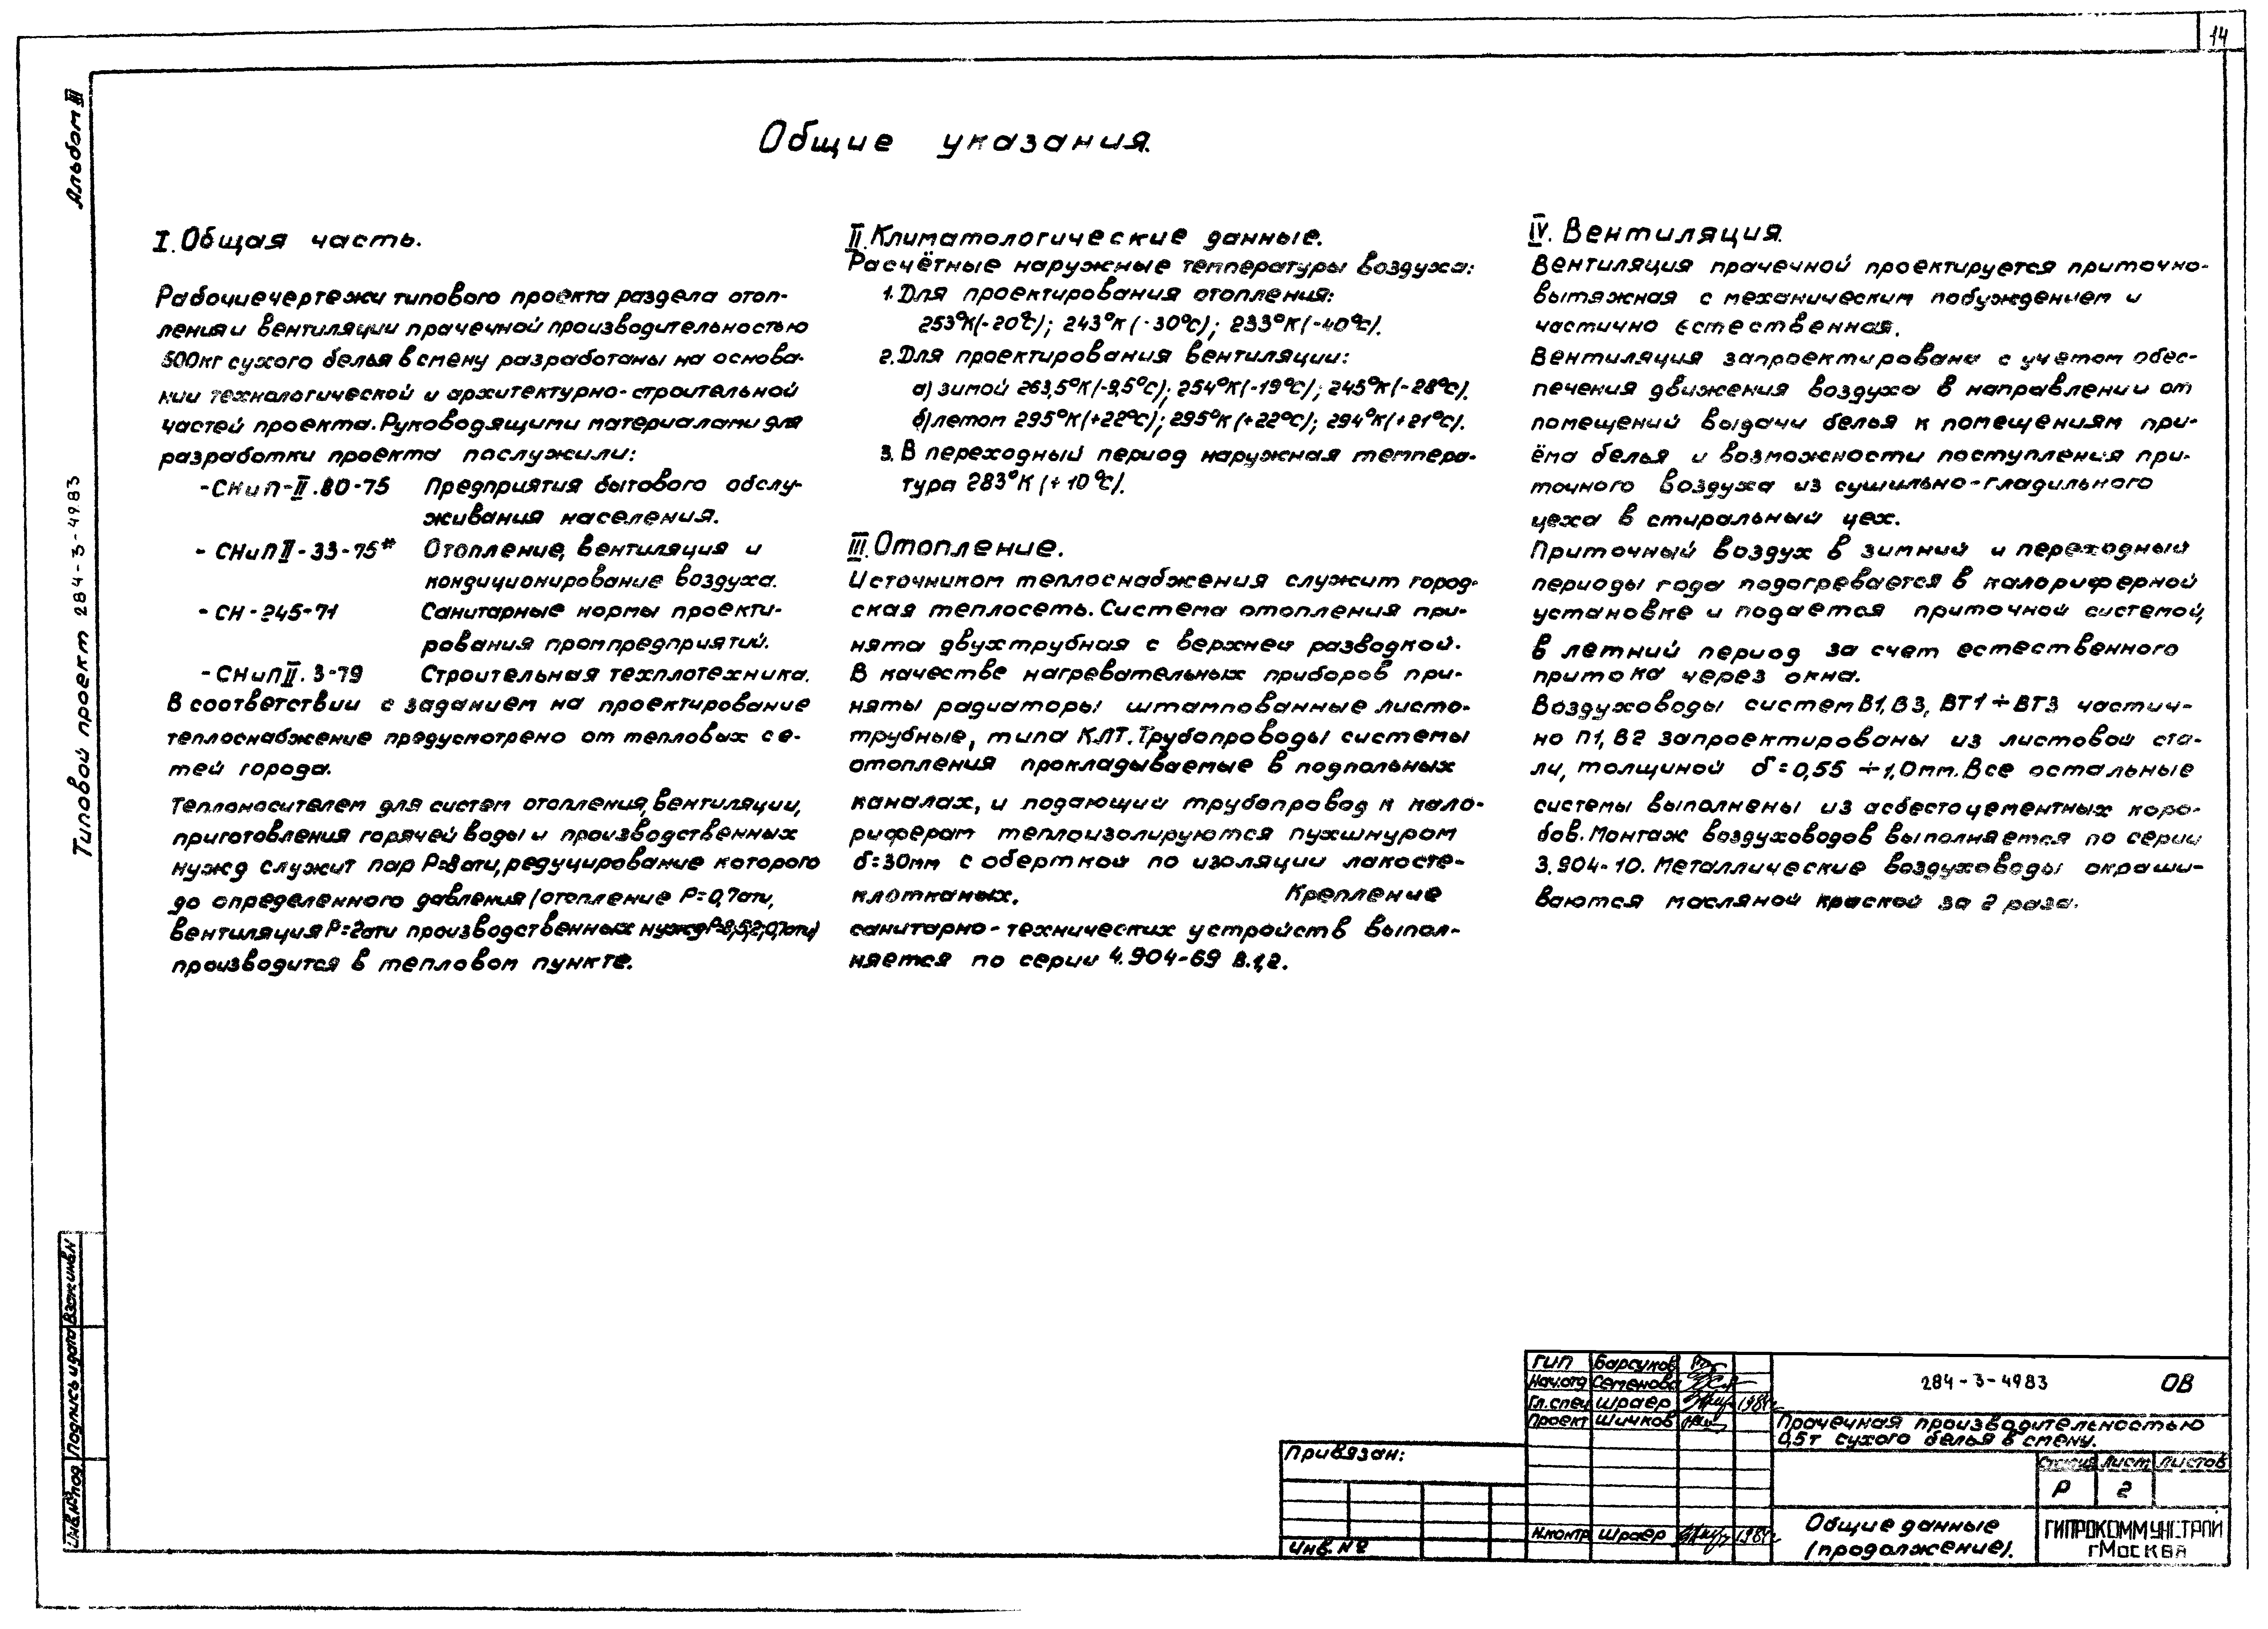 14
Альбом III
Типовой проект 284-3-4983
Общие указания.
I. Общая часть.
Рабочие чертежи типового проекта раздела отоп-
ления и вентиляции прачечной производительностью
500кг сухого белья в смену разработаны на основа-
нии технологической и архитектурно-строительной
частей проекта. Руководящими материалами для
разработки проекта послужили:
-СНиП-II.80-75 Предприятия бытового обслу-
живания населения.
- СНиП II-33-75* Отопление, вентиляция и
кондиционирование воздуха.
- СН-245-71 Санитарные нормы проекти-
рования промпредприятий.
- СНиП II.3-79 Строительная техплотехника.
В соответствии с заданием на проектирование
теплоснабжение предусмотрено от тепловых се-
тей города.
Теплоносителем для систем отопления, вентиляции,
приготовления горячей воды и производственных
нужд служит пар Р=8ати, редуцирование которого
до определенного давления (отопление Р=0,7ати,
вентиляция Р=2ати производственных нужд
производится в тепловом пункте.
II. Климатологические данные.
Расчётные наружные температуры воздуха:
1. Для проектирования отопления:
253°К(-20°С); 243°К(-30°С); 233°К(-40°С).
2. Для проектирования вентиляции:
а) зимой 263,5°К(-9,5°С); 254°К(-19°С); 245°К(-28°С).
б) летом 295°К(+22°С); 295°К(+22°С); 294°К(+21°С).
3. В переходный период наружная темпера-
тура 283°К(+10°С).
III. Отопление.
Источником теплоснабжения служит город-
ская теплосеть. Система отопления при-
нята двухтрубная с верхней разводкой.
В качестве нагревательных приборов при-
няты радиаторы штампованные листо-
трубные, типа КЛТ. Трубопроводы системы
отопления прокладываемые в подпольных
каналах, и подающий трубопровод к кало-
риферам теплоизолируются пухшнуром
δ=30мм с оберткой по изоляции лакосте-
клотканых. Крепление
санитарно-технических устройств выпол-
няется по серии 4.904-69 в.1,2.
IV. Вентиляция.
Вентиляция прачечной проектируется приточно-
вытяжная с механическим побуждением и
частично естественная.
Вентиляция запроектирована с учетом обес-
печения движения воздуха в направлении от
помещений выдачи белья к помещениям при-
ёма белья и возможности поступления при-
точного воздуха из сушильно-гладильного
цеха в стиральный цех.
Приточный воздух в зимний и переходный
периоды года подогревается в калориферной
установке и подается приточной системой,
в летний период за счет естественного
притока через окна.
Воздуховоды систем В1, В3, ВТ1÷ВТ3 частич-
но П1, В2 запроектированы из листовой ста-
ли, толщиной δ=0,55÷1,0мм. Все остальные
системы выполнены из асбестоцементных коро-
бов. Монтаж воздуховодов выполняется по серии
3.904-10. Металлические воздуховоды окраши-
ваются масляной краской за 2 раза.
Инв.№ под. Подпись и дата Взам.инв.N
Привязан:
Инв. №
ГИП Барсуков
Нач.отд Семенова
Гл.спец Шраер 1984г
Проект Шичков
Н.контр Шраер 1984г
284-3-4983 ОВ
Прачечная производительностью
0,5т сухого белья в смену.
Стадия Лист Листов
Р 2
Общие данные
(продолжение).
ГИПРОКОММУНСТРОЙ
г Москва